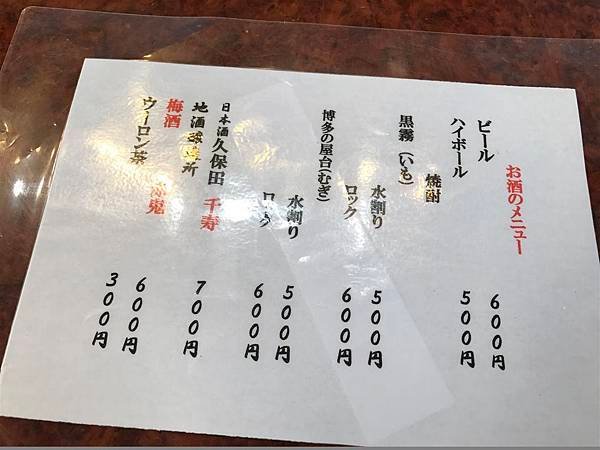 お酒のメニュー
ビール 600円
ハイボール 500円
焼酎
黒霧(いも)
水割り 500円
ロック 600円
博多の屋台(むぎ)
水割り 500円
ロック 600円
日本酒久保田 千寿 700円
地酒醸造所
梅酒 赤鬼 600円
ウーロン茶 300円